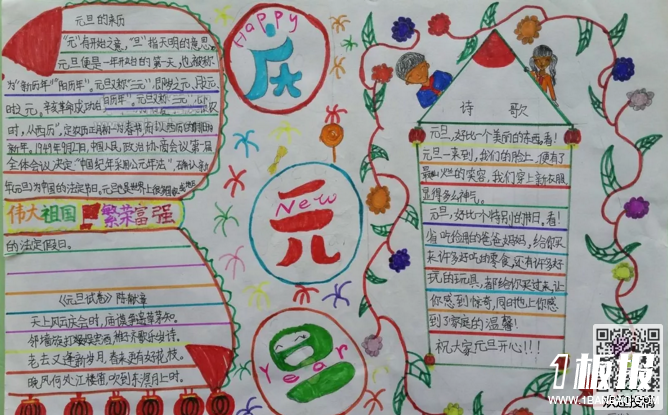 元旦的来历
"元"有开始之意,"旦"指天明的意思。
元旦便是一年开始的第一天,也被称
为"新历年""阳历年"。元旦又称"三元",即岁之元、月之元、
时之元。辛亥革命成功后
时,从西历",定农历正月初一为春节
新年。1949年9月27日,中国人民政治协商会议第一届
全体会议决定"中国纪年采用公元年法",确认
年元旦为中国的法定节日。元旦也是世界上
伟大祖国 繁荣富强
的法定假日。
《元旦试卷》陈献章
天上风云庆会时,庙谟争遗草茅知。
邻墙旋打娱宾酒,稚子齐歌乐岁诗。
老去又逢新岁月,春来更有好花枝。
晚风何处江楼笛,吹到东溟月上时。
Happy
庆
New
元
Year
旦
诗 歌
元旦,好比一个美丽的东西,看!
元旦一来到,我们的脸上,便有了
最灿烂的笑容,我们穿上新衣服
显得多么神气。
元旦,好比一个特别的节日,看!
省吃俭用的爸爸妈妈,给你买
来许多好吃的零食,还有许多好
玩的玩具,都给你买过来,让
你感到惊奇,同时也让你感
到了家庭的温馨!
祝大家元旦开心!!!
1板报
WWW.1BANBAO.COM
欢迎投稿